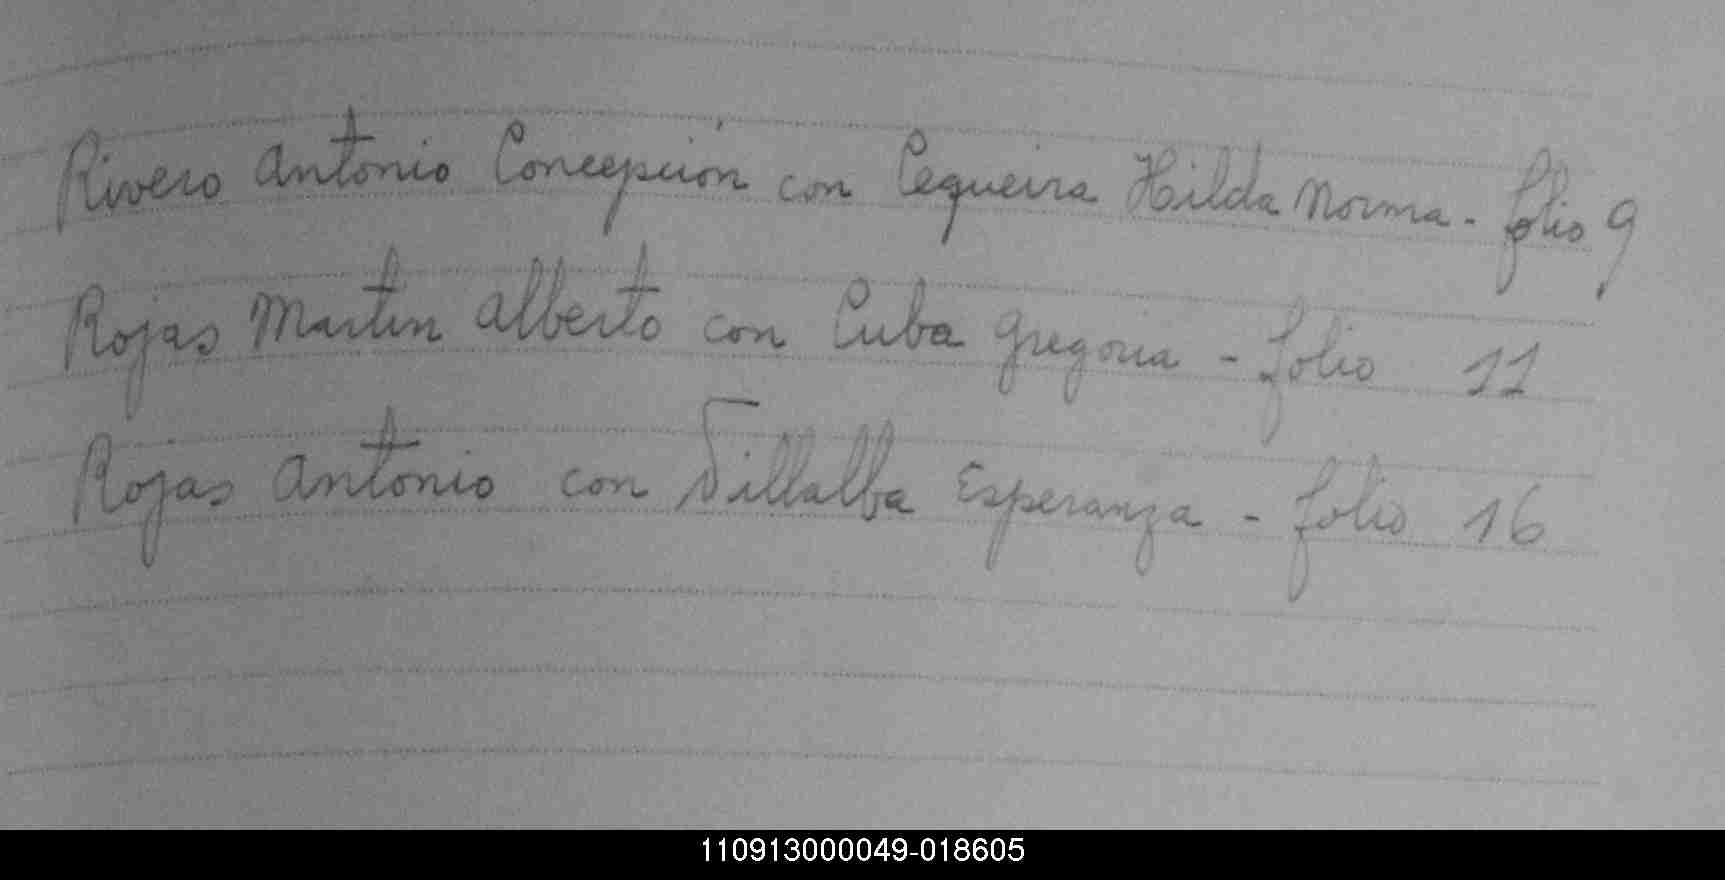 Rivero Antonio Concepción con Cequeira Hilda Norma - folio 9
Rojas Martin Alberto con Cuba Gregoria - folio 11
Rojas Antonio con Villalba Esperanza - folio 16
110913000049-018605